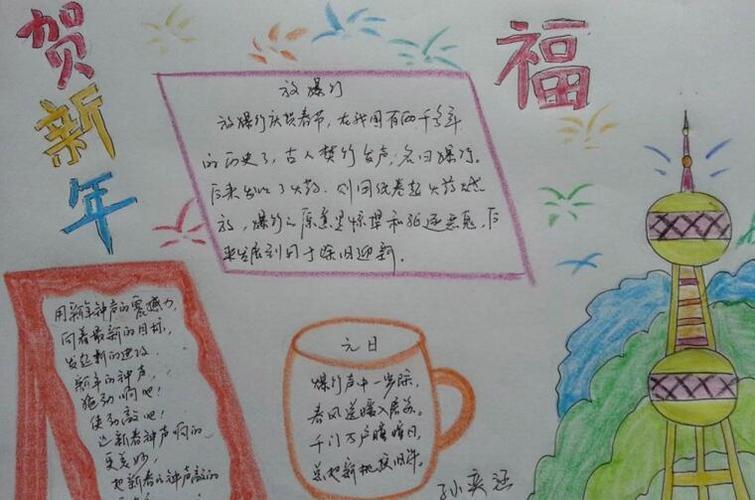 贺新年
福
放爆竹
放爆竹庆贺春节，在我国有两千多年
的历史了，古人焚竹发声，名曰爆竹。
后来出了火药，则用纸卷起火药燃
放，爆竹之原意是惊惮和驱逐恶鬼，后
来发展到用于除旧迎新。
用新年钟声的震撼力，
向着最新的目标，
发起新的进攻
新年的钟声，
施劲响吧！
使劲敲吧！
让新春钟声响的
更美妙，
把新春的钟声敲的
元日
爆竹声中一岁除，
春风送暖入屠苏。
千门万户曈曈日，
总把新桃换旧符。
孙奕涵